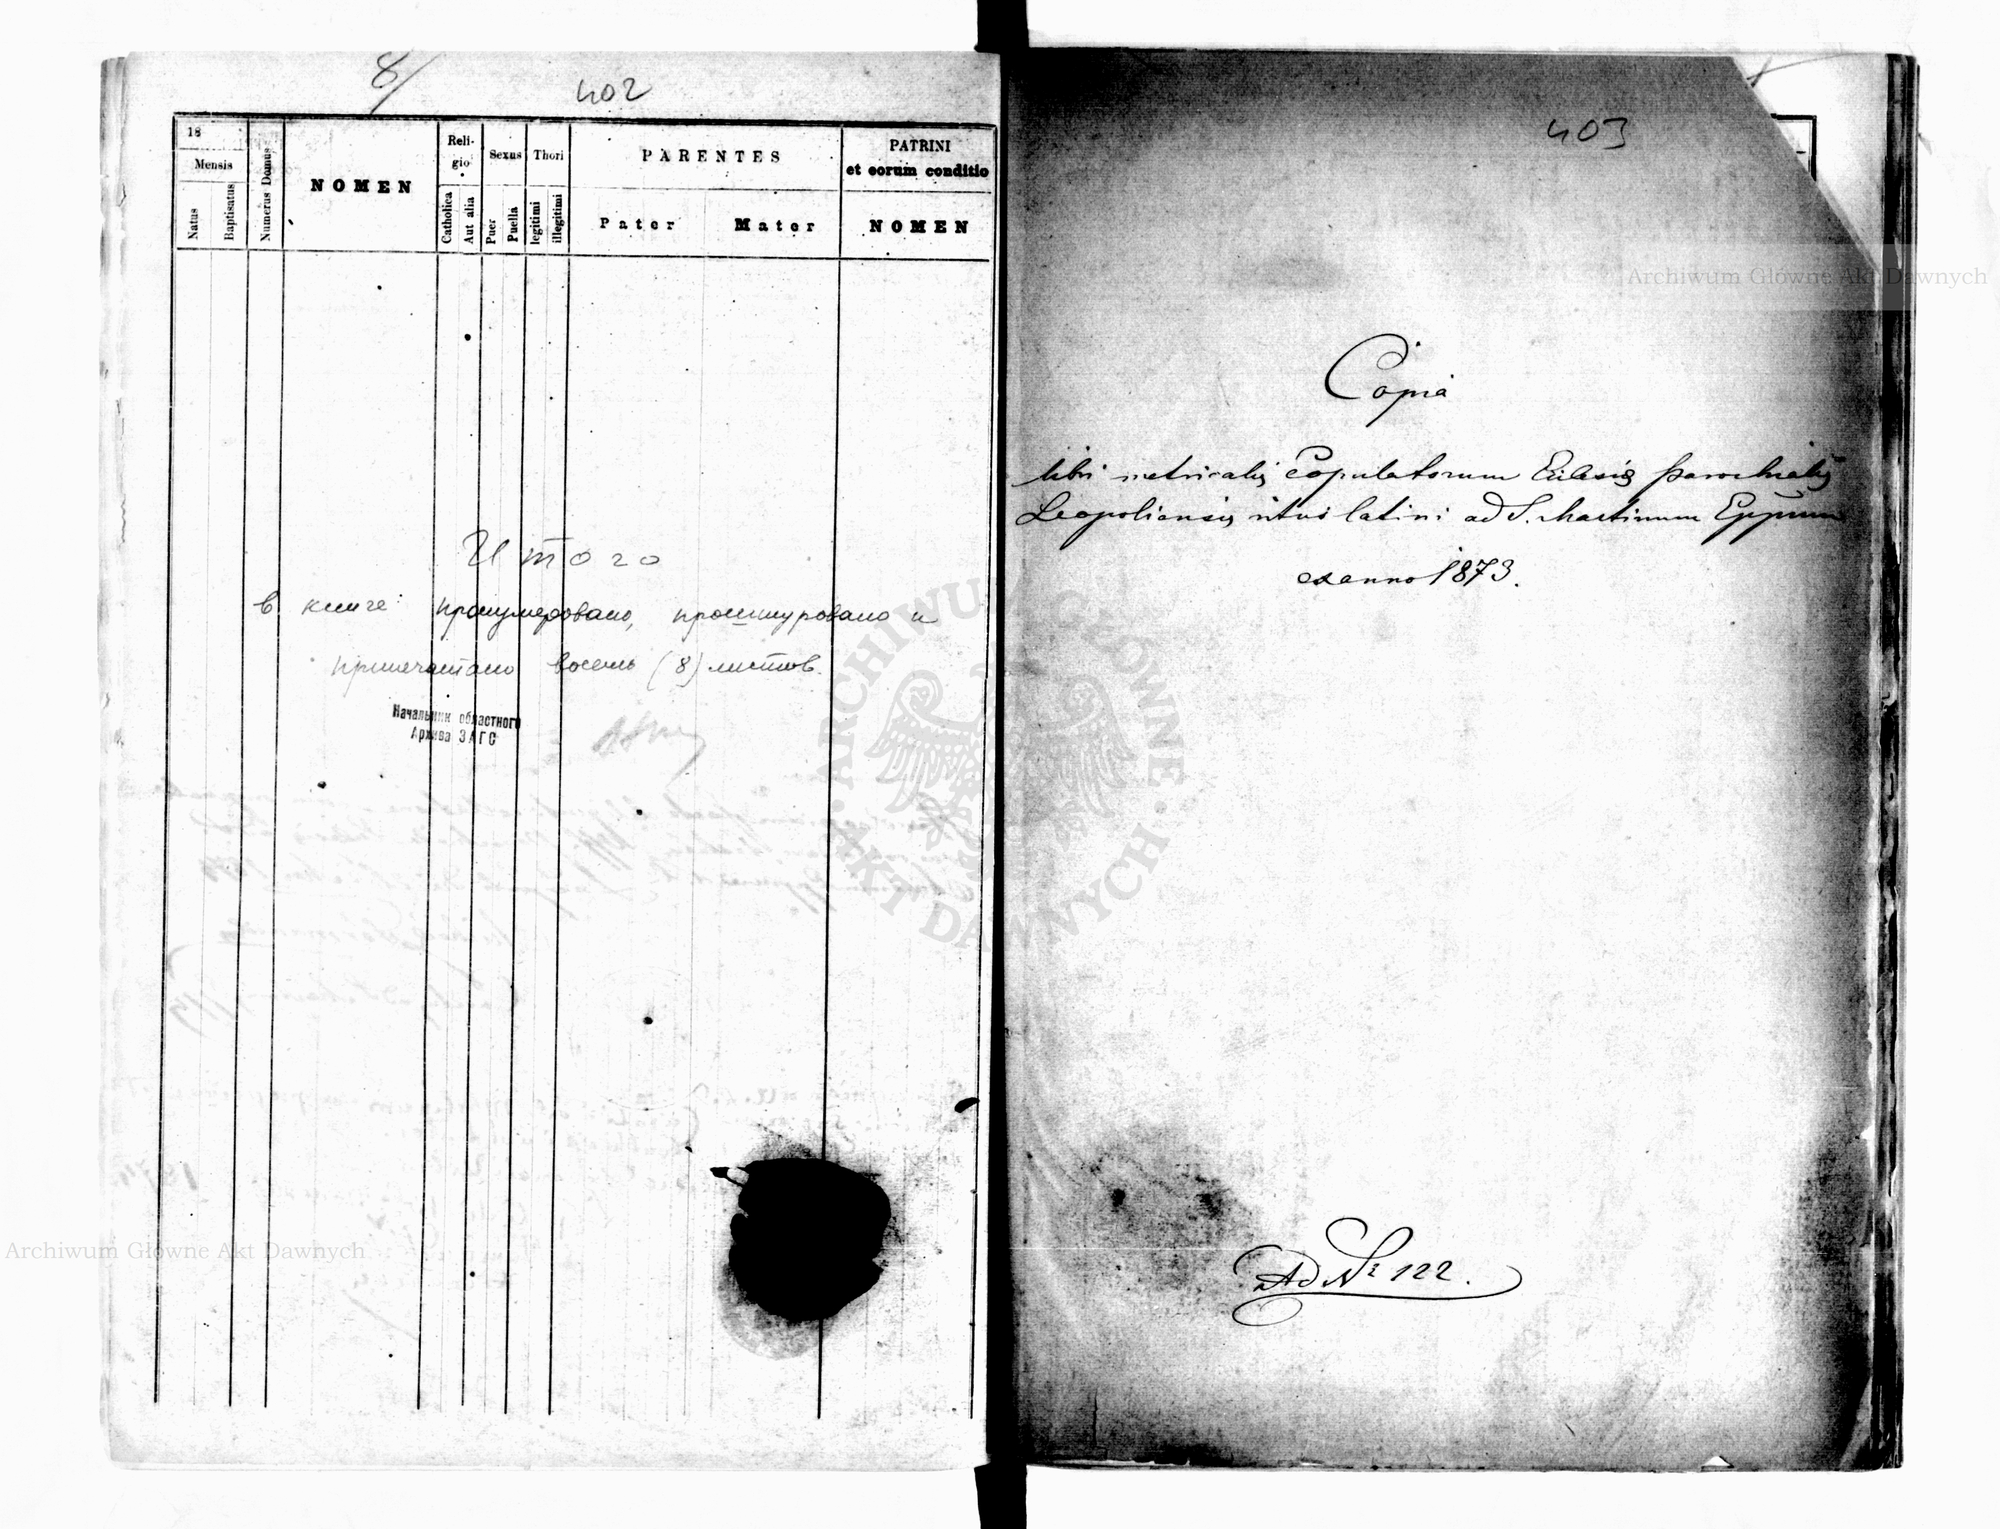 8/
402
18
Mensis
Natus
Baptisatus
Numerus Domus
NOMEN
Reli-
gio
Catholica
Aut alia
Sexus
Puer
Puella
Thori
legitimi
illegitimi
PARENTES
Pater
Mater
PATRINI
et eorum conditio
NOMEN
Итого
в книге пронумеровано, прошнуровано и
припечатано восемь (8) листов.
Начальник областного
Архива ЗАГС
403
Copia
libri metricalis Copulatorum Ecclesiæ parochialis
Leopoliensis ritus latini ad S. Martinum Eppum
ex anno 1873.
Ad Nr 122.
Archiwum Główne Akt Dawnych
Archiwum Główne Akt Dawnych
ARCHIWUM GŁÓWNE
AKT DAWNYCH